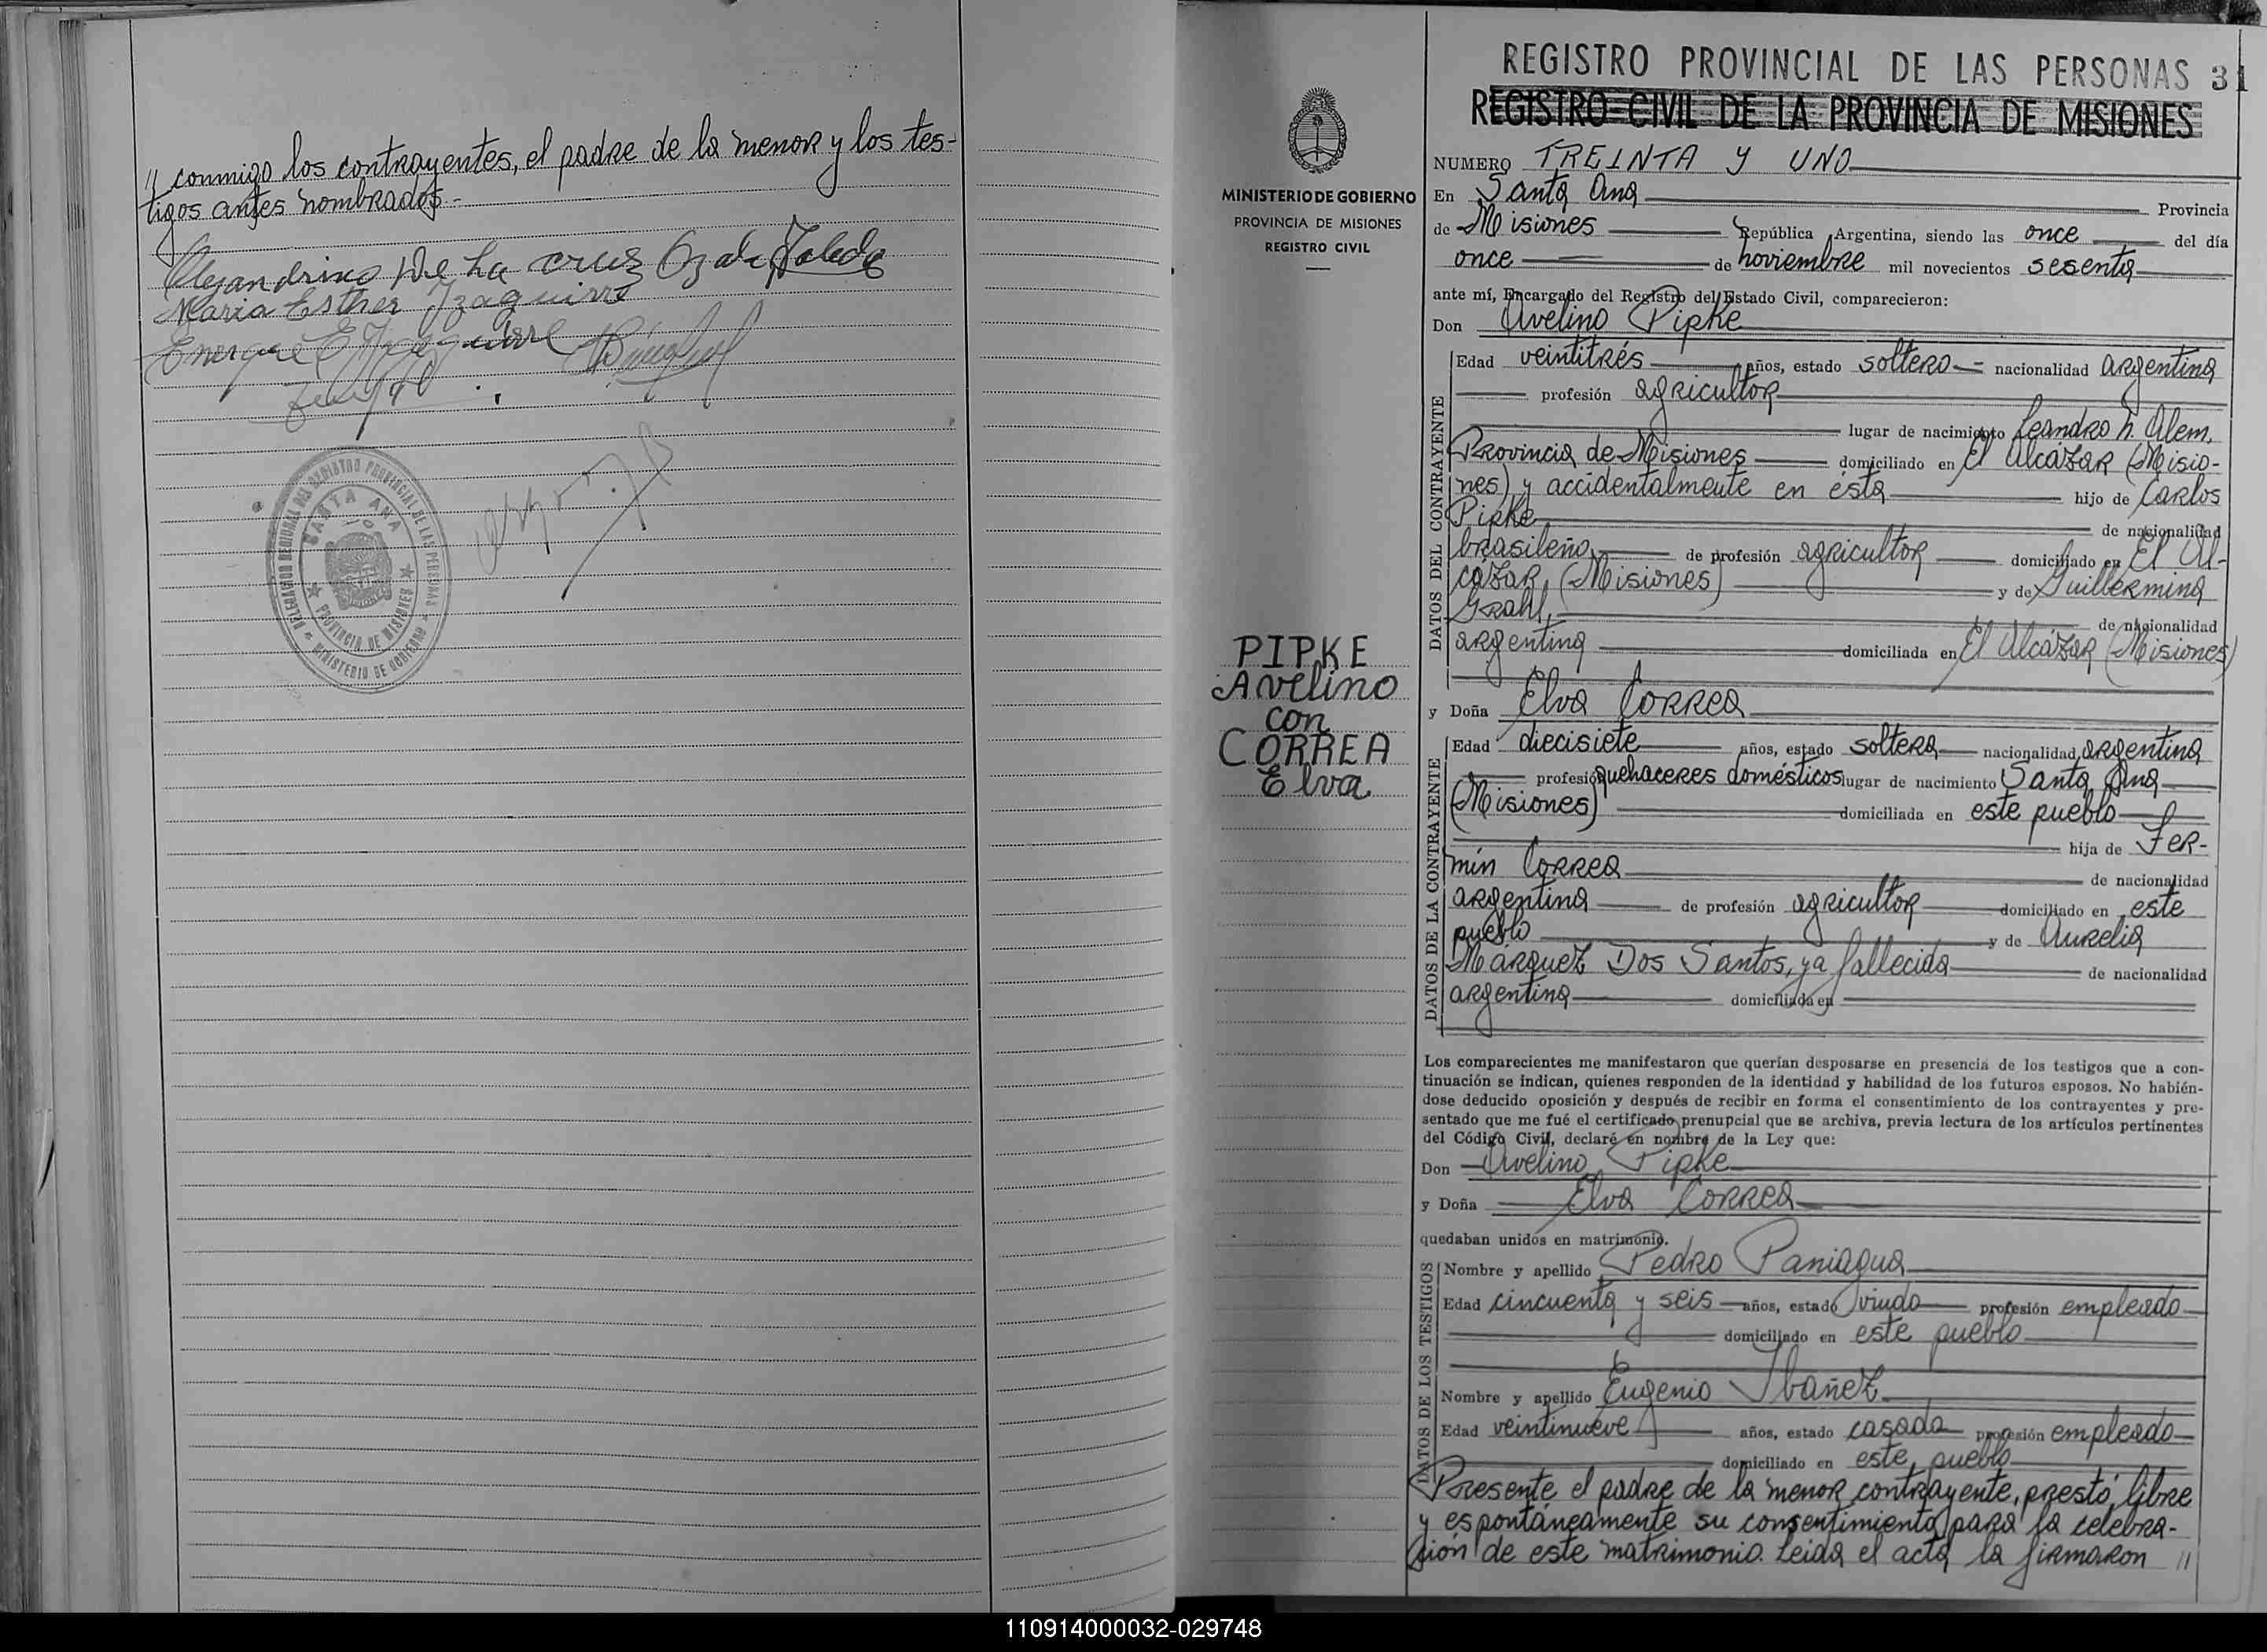 " conmigo los contrayentes, el padre de la menor y los tes-
tigos antes nombrados.-
Alejandrino De La cruz Toledo
Maria Esther Yzaguirre
Enrique E
DELEGACION REGIONAL DEL REGISTRO PROVINCIAL DE LAS PERSONAS
SANTA ANA
PROVINCIA DE MISIONES
MINISTERIO DE GOBIERNO
MINISTERIO DE GOBIERNO
PROVINCIA DE MISIONES
REGISTRO CIVIL
PIPKE
Avelino
con
CORREA
Elva
REGISTRO PROVINCIAL DE LAS PERSONAS 31
REGISTRO CIVIL DE LA PROVINCIA DE MISIONES
NUMERO TREINTA Y UNO
En Santa Ana Provincia
de Misiones República Argentina, siendo las once del día
once de noviembre mil novecientos sesenta
ante mí, Encargado del Registro del Estado Civil, comparecieron:
Don Avelino Pipke
DATOS DEL CONTRAYENTE
Edad veintitrés años, estado soltero nacionalidad argentina
profesión agricultor
lugar de nacimiento Leandro N. Alem,
Provincia de Misiones domiciliado en El Alcázar (Misio-
nes) y accidentalmente en ésta hijo de Carlos
Pipke de nacionalidad
brasileño, de profesión agricultor domiciliado en El Al-
cázar, (Misiones) y de Guillermina
Grahl, de nacionalidad
argentina domiciliada en El Alcázar (Misiones)
y Doña Elva Correa
DATOS DE LA CONTRAYENTE
Edad diecisiete años, estado soltera nacionalidad argentina
profesión quehaceres domésticos lugar de nacimiento Santa Ana
(Misiones) domiciliada en este pueblo
hija de Fer-
mín Correa de nacionalidad
argentina de profesión agricultor domiciliado en este
pueblo y de Aurelia
Márquez Dos Santos, ya fallecida de nacionalidad
argentina domiciliada en
Los comparecientes me manifestaron que querían desposarse en presencia de los testigos que a con-
tinuación se indican, quienes responden de la identidad y habilidad de los futuros esposos. No habién-
dose deducido oposición y después de recibir en forma el consentimiento de los contrayentes y pre-
sentado que me fué el certificado prenupcial que se archiva, previa lectura de los artículos pertinentes
del Código Civil, declaré en nombre de la Ley que:
Don Avelino Pipke
y Doña Elva Correa
quedaban unidos en matrimonio.
DATOS DE LOS TESTIGOS
Nombre y apellido Pedro Paniagua
Edad cincuenta y seis años, estado viudo profesión empleado
domiciliado en este pueblo
Nombre y apellido Eugenio Ibañez
Edad veintinueve años, estado casado profesión empleado
domiciliado en este pueblo
Presente el padre de la menor contrayente, prestó libre
y espontáneamente su consentimiento para la celebra-
ción de este matrimonio. Leida el acta la firmaron "
110914000032-029748